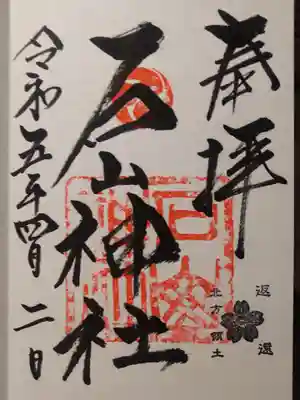 奉拝
返還
北方領土
石山神社
令和五年四月二日